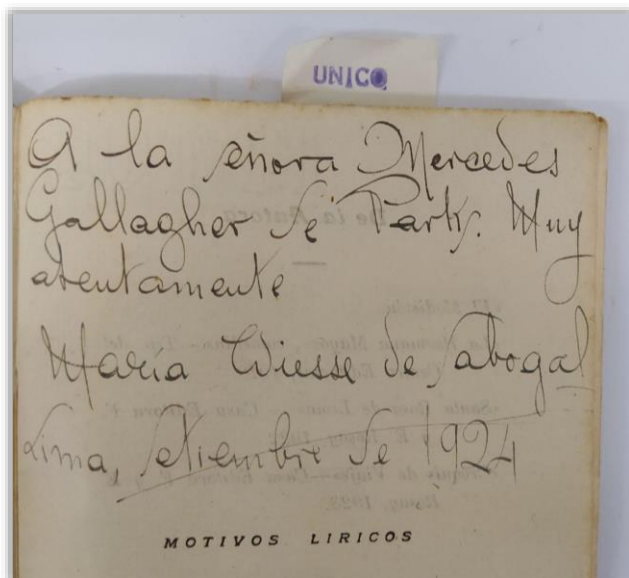 UNICO
A la señora Mercedes
Gallagher de Parks. Muy
atentamente
María Wiesse de Sabogal
Lima, Setiembre de 1924
MOTIVOS LIRICOS